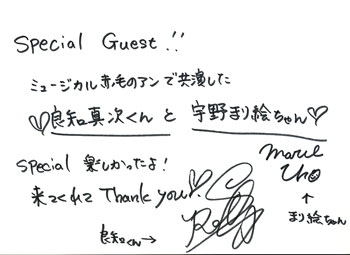 Special Guest!!
ミュージカル赤毛のアンで共演した
♡良知真次くんと宇野まり絵ちゃん♡
Special 楽しかったよ!
来てくれて Thank you♡
Marie Uno
↑
まり絵ちゃん
良知くん→